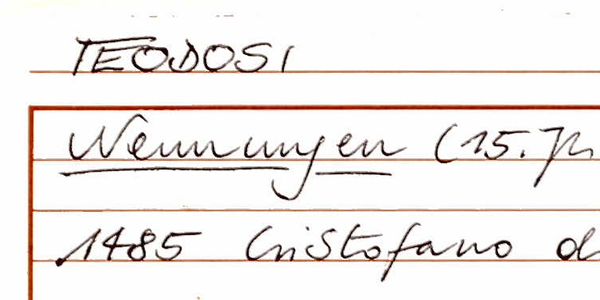 TEODOSI
Nennungen (15. Jh
1485 Cristofano d